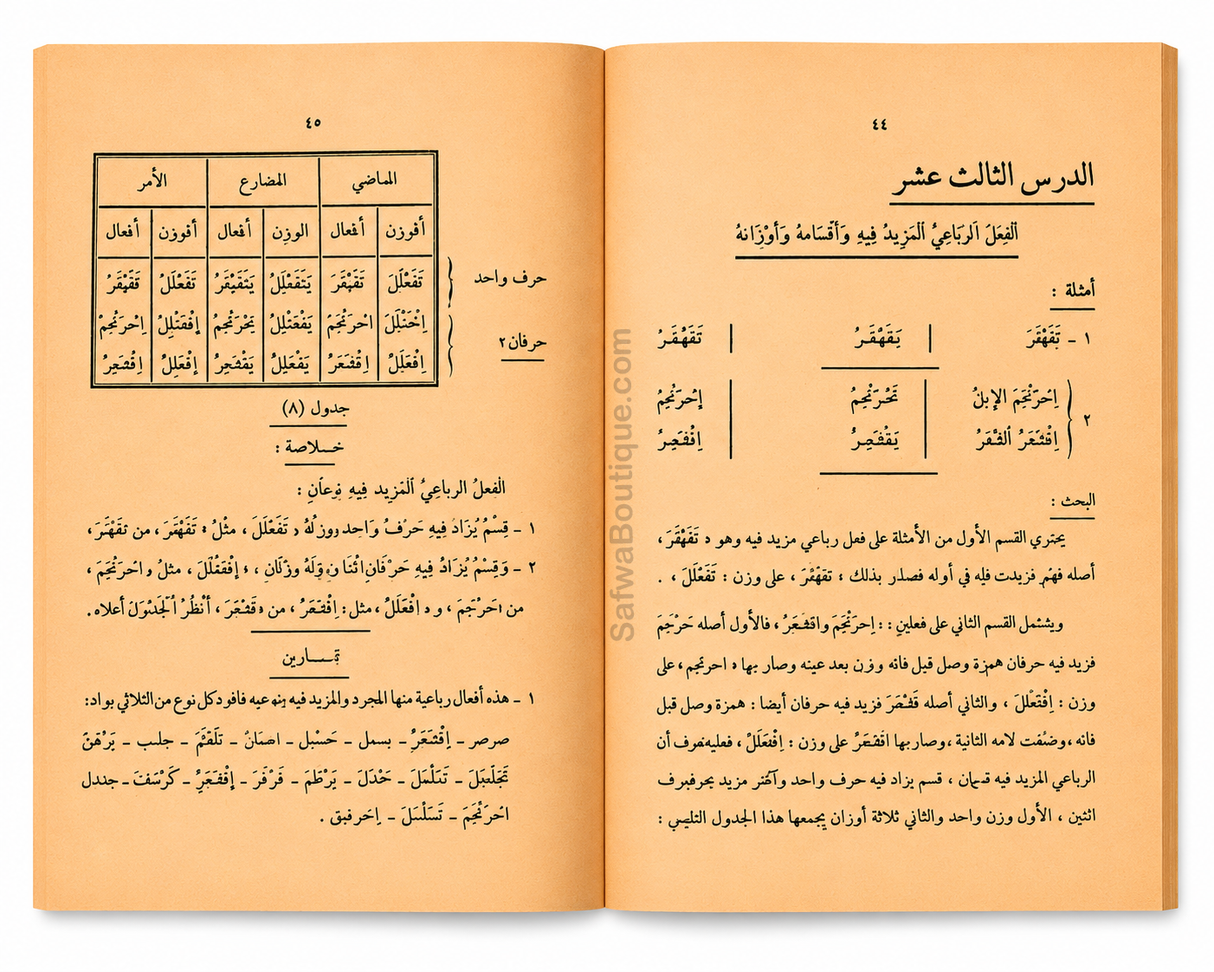 ٤٤
الدرس الثالث عشر
اَلْفِعْلَ اَلرَبَاعِيُّ اَلْمَزِيدُ فِيهِ وَأَقْسَامهُ وَأَوْزَانهُ
أمثلة :
١ - تَقَهْقَرَ | يَقَهْقَـرُ | تَقَهْقَـرُ
٢
اِحْرَنْجَمَ الإبلُ | تَحْرَنْجِمُ | إِحْرَنْجِمُ
اِقْشَعَرُ الشَـعَرُ | يَقْفَعِـرُ | اِقْفَعِرُ
البحث :
يحتري القسم الأول من الأمثلة على فعل رباعي مزيد فيه وهو « تَقَهْقَرَ ،
أصله فيه في أوله بذلك : تقهقَرُ ، على وزن : تَفَعْلَلَ ، .
ويشتمل القسم الثاني على فعلين : : إحرَنْجَمَ واقشعَرُ ، فالأول أصله حَرْجَمَ
فزيد فيه حرفان همزة وصل قبل فائه ونون بعد عينه وصار بها « احرنجم ، على
وزن : اِفْتَعْلَلَ ، والثاني أصله قَشْعَرَ فزيد فيه حرفان أيضا : همزة وصل قبل
فائه ، لامه الثانية ، وصار بها اقفعَرُ على وزن : اِفْعَلَلْ ، أن
الرباعي المزيد فيه ، قسم يزاد فيه حرف واحد مزيد
اثنين ، الأول وزن واحد والثاني ثلاثة أوزان يجمعها هذا الجدول :
SafwaBoutique.com
٤٥
الماضي | المضارع | الأمر
أفوزن | أفعال | الوزن | أفعال | أفوزن | أفعال
حرف واحد
تَفَعْلَلَ | تَقَهْقَرَ | يَتَفَعْلِلُ | يَتَقَيْقَرُ | تَفَعْلَلُ | تَقَيْقَرُ
حرفان ٢
اِحْتَلَلَ | احْرَنْجَمَ | يَفْعَتْلِلُ | يَحْرَنْجِمُ | إفْعَتْلِلُ | اِحْرَنْجِمْ
اِفْعَلَلَّ | اِقْشَعَرَ | يَفْعَلِلُ | يَقْفَعِرُ | اِفْعَلِلُ | اِقْشَعِرُ
جدول (٨)
خـلاصة :
الْفعلُ الرباعِيُ اَلْمَزِيد فِيهِ نوعَانِ :
١ - قِسْمٌ يُزَادُ فِيهِ حَرْفُ وَاحد ووزلُهُ « تَفَعْلَلَ ، مثْلُ : تَقَهْقَرَ ، من تقَهْقَرَ ،
٢ - وَقِسْمٌ يُزَادُ فِيهِ حَرْفَانِ اثْنَانِ وَلَهُ وزنَانِ ، : إفْقَقْلَلَ ، مثلُ « احْرَنْجَمَ ،
من احَرْجَمَ ، و « افْعَلَلُ ، مثل : اِقْفَعَرُ ، من « قَشْعَرَ ، أُنْظُرُ اَلْجَدْوَلَ أعلاه .
تمـــارين
١ - هذه أفعال رباعية منها المجرد والمزيد فيه كل نوع من الثلاثي :
صرصر - اِقْشَعَرُ - بسمل - حَسْبل - - تَلَقْثَمَ - جلب - بَرْهَنَ
- - حَدْلَ - بَرْطَمَ - فَرْفَرَ - إقْفَعَرُ - كَرْسَفَ - جندل
احْرَنْجَمَ - تَسَلْسَلَ - .